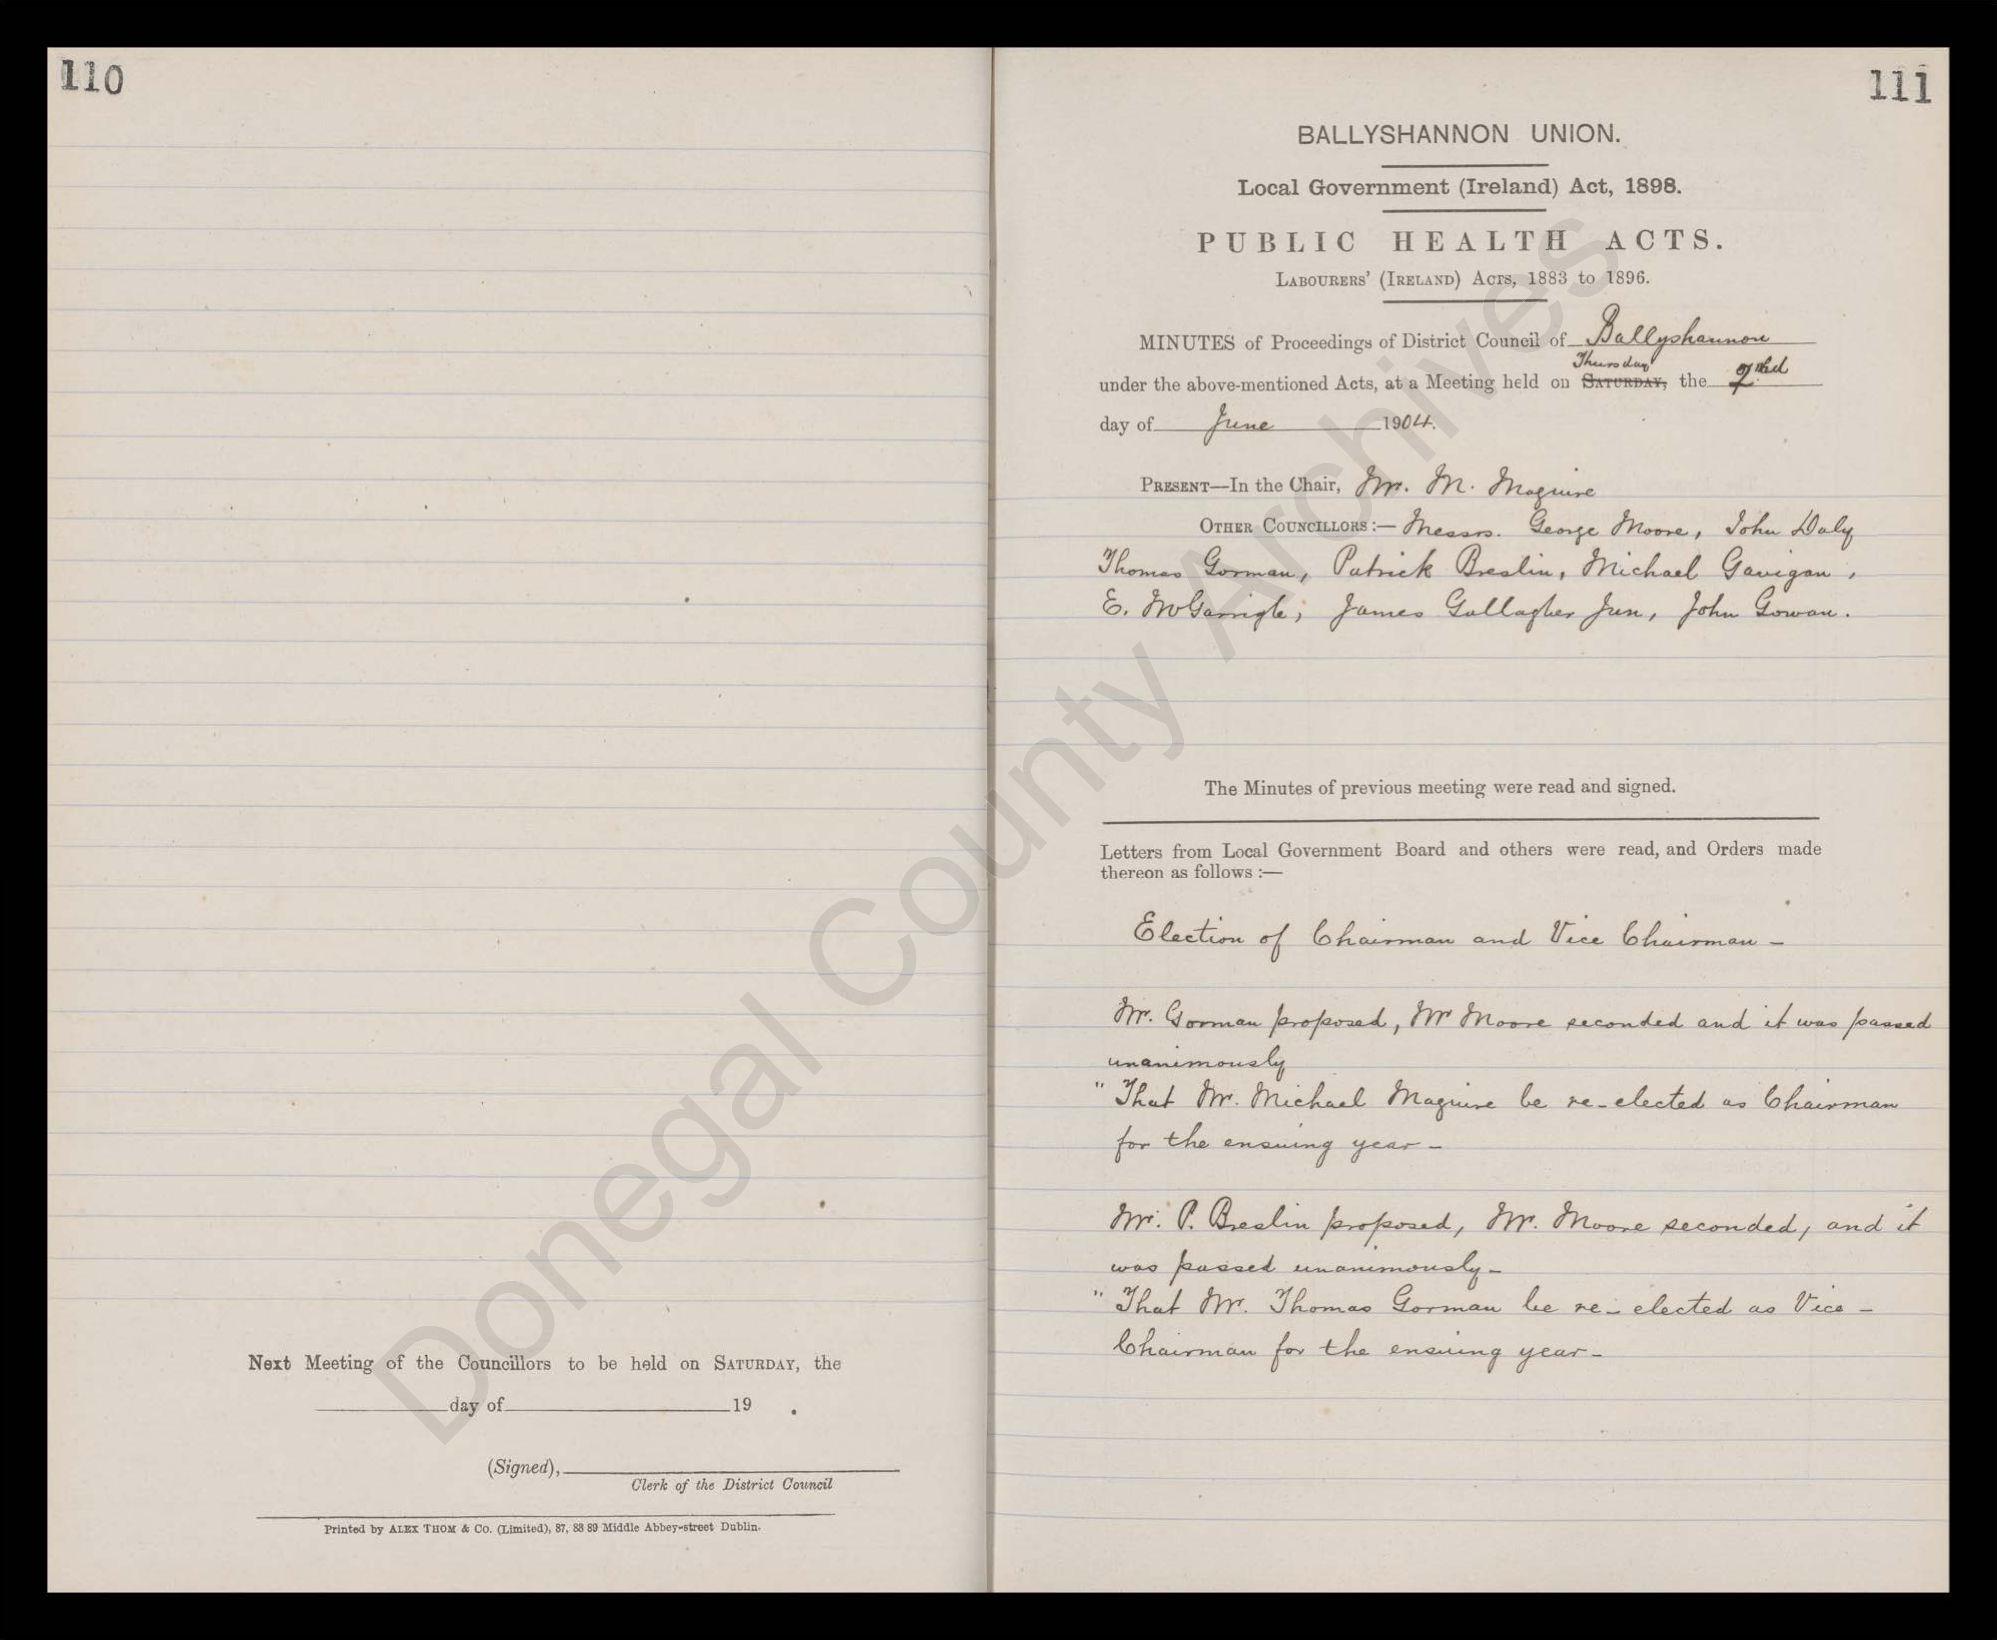 110
Next Meeting of the Councillors to be held on SATURDAY, the
day of 19 .
(Signed),
Clerk of the District Council
Printed by ALEX THOM & CO. (Limited), 87, 88 89 Middle Abbey-street Dublin.
111
BALLYSHANNON UNION.
Local Government (Ireland) Act, 1898.
PUBLIC HEALTH ACTS.
LABOURERS' (IRELAND) ACTS, 1883 to 1896.
MINUTES of Proceedings of District Council of Ballyshannon
Thursday
under the above-mentioned Acts, at a Meeting held on SATURDAY, the
day of June 1904.
PRESENT—In the Chair, Mr. M. Maguire
OTHER COUNCILLORS :— Messrs. George Moore, John Daly
Thomas Gorman, Patrick Breslin, Michael Gavigan,
E. McGarrigle, James Gallagher Jun, John Gowan.
The Minutes of previous meeting were read and signed.
Letters from Local Government Board and others were read, and Orders made
thereon as follows :—
Election of Chairman and Vice Chairman -
Mr. Gorman proposed, Mr Moore seconded and it was passed
unanimously
" That Mr. Michael Maguire be re-elected as Chairman
for the ensuing year -
Mr. P. Breslin proposed, Mr. Moore seconded, and it
was passed unanimously -
" That Mr. Thomas Gorman be re-elected as Vice -
Chairman for the ensuing year -
Donegal County Archives